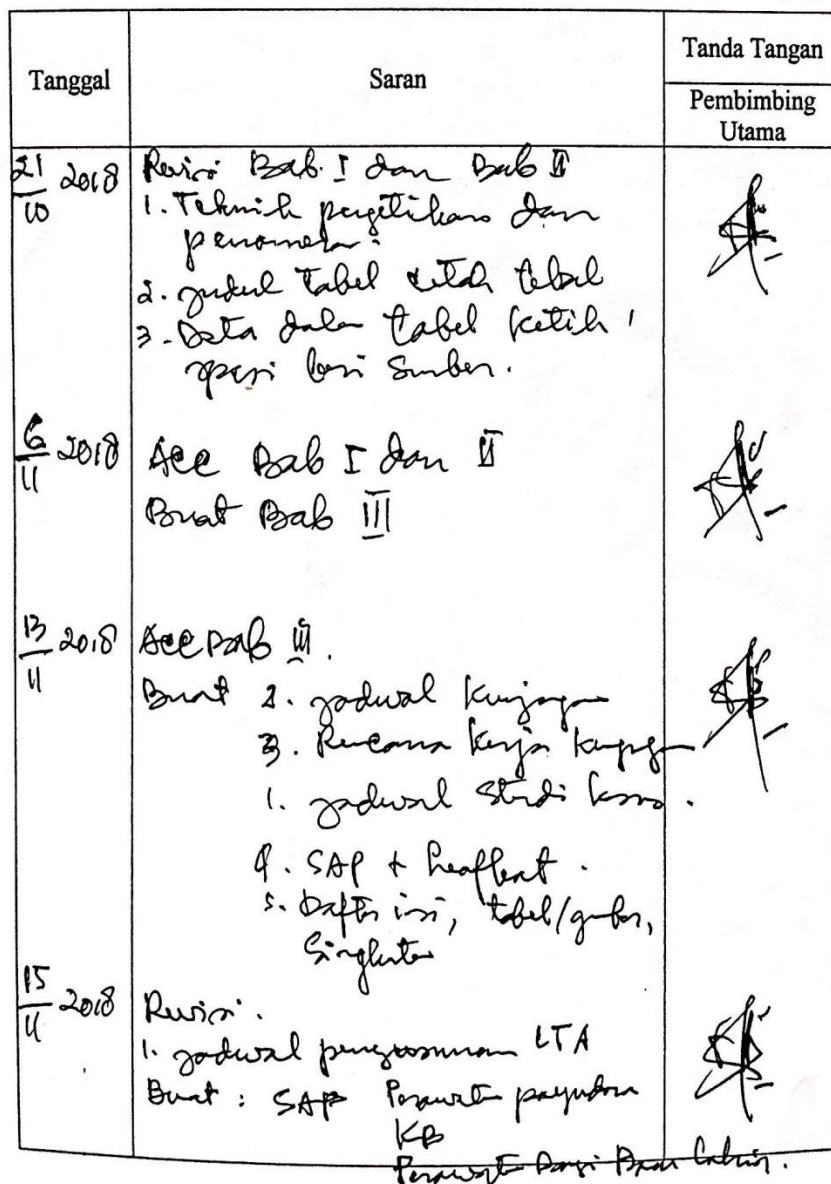 Tanggal
Saran
Tanda Tangan
Pembimbing
Utama
21/10 2018
Revisi Bab. I dan Bab II
1. Teknik pengetikan dan
penomoran.
2. judul tabel cetak tebal
3. Data dalam tabel ketik 1
spasi beri Sumber.
6/11 2018
Acc Bab I dan II
Buat Bab III
13/11 2018
Acc Bab III.
Buat 2. jadwal Kunjungan
3. Rencana Kerja Kunjungan
1. jadwal Studi kasus.
4. SAP + Leafleat.
5. Daftar isi, tabel/gambar,
Singkatan
15/11 2018
Revisi.
1. jadwal penyusunan LTA
Buat : SAP Perawatan payudara
KB
Perawatan Bayi Baru Lahir.